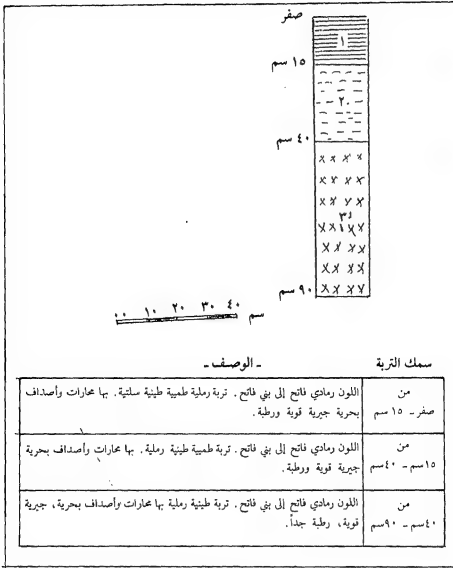 صفر
١
١٥ سم
٢٠
٤٠ سم
٣
٩٠ سم
٠٠ ١٠ ٢٠ ٣٠ ٤٠
سم
سمك التربة
ـ الوصـف ـ
من
صفر ـ ١٥ سم
اللون رمادي فاتح إلى بني فاتح. تربة رملية طميية طينية سلتية. بها محارات وأصداف
بحرية جيرية قوية ورطبة.
من
١٥سم ـ ٤٠سم
اللون رمادي فاتح إلى بني فاتح. تربة طميية طينية رملية. بها محارات وأصداف بحرية
جيرية قوية ورطبة.
من
٤٠سم ـ ٩٠سم
اللون رمادي فاتح إلى بني فاتح. تربة طينية رملية بها محارات وأصداف بحرية، جيرية
قوية، رطبة جداً.